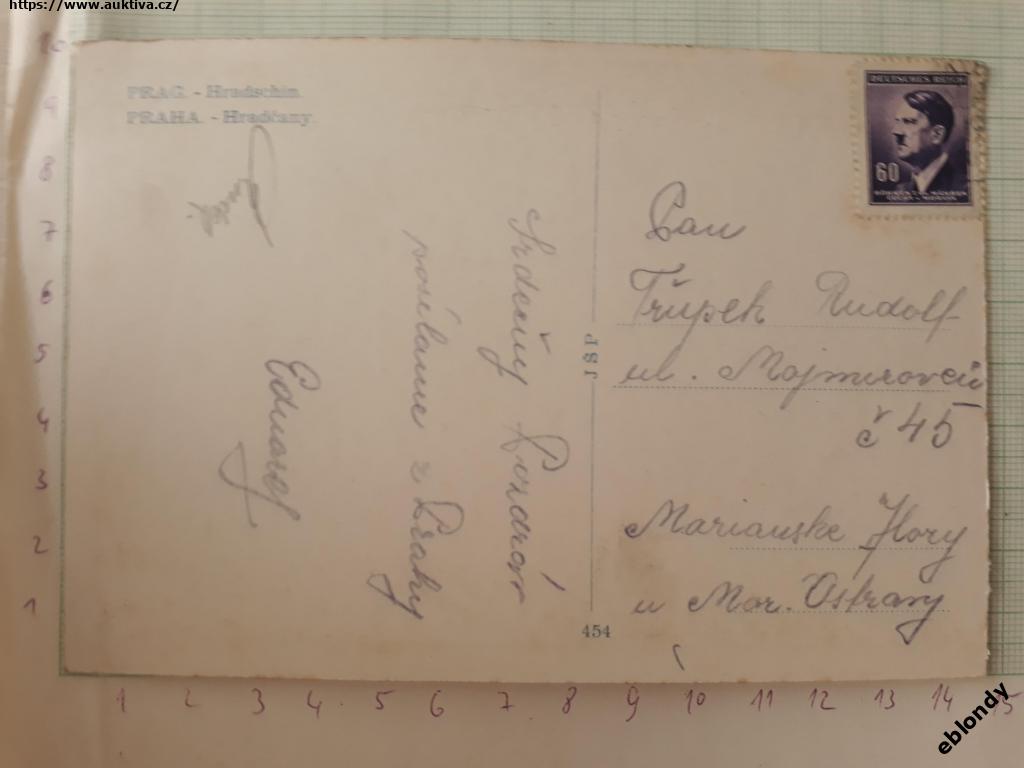 https://www.auktiva.cz/
PRAG. - Hradschin.
PRAHA. - Hradčany.
Srdečny Pozdrav
z Prahy
Eduard
J Š P
454
DEUTSCHES REICH
60
BÖHMEN U. MÄHREN
ČECHY - MORAVA
Pan
Třúpek Rudolf
ul. Mojmirovců
č 45
Marianske Hory
u Mor. Ostravy
10
9
8
7
6
5
4
3
2
1
1 2 3 4 5 6 7 8 9 10 11 12 13 14 15
eblondy